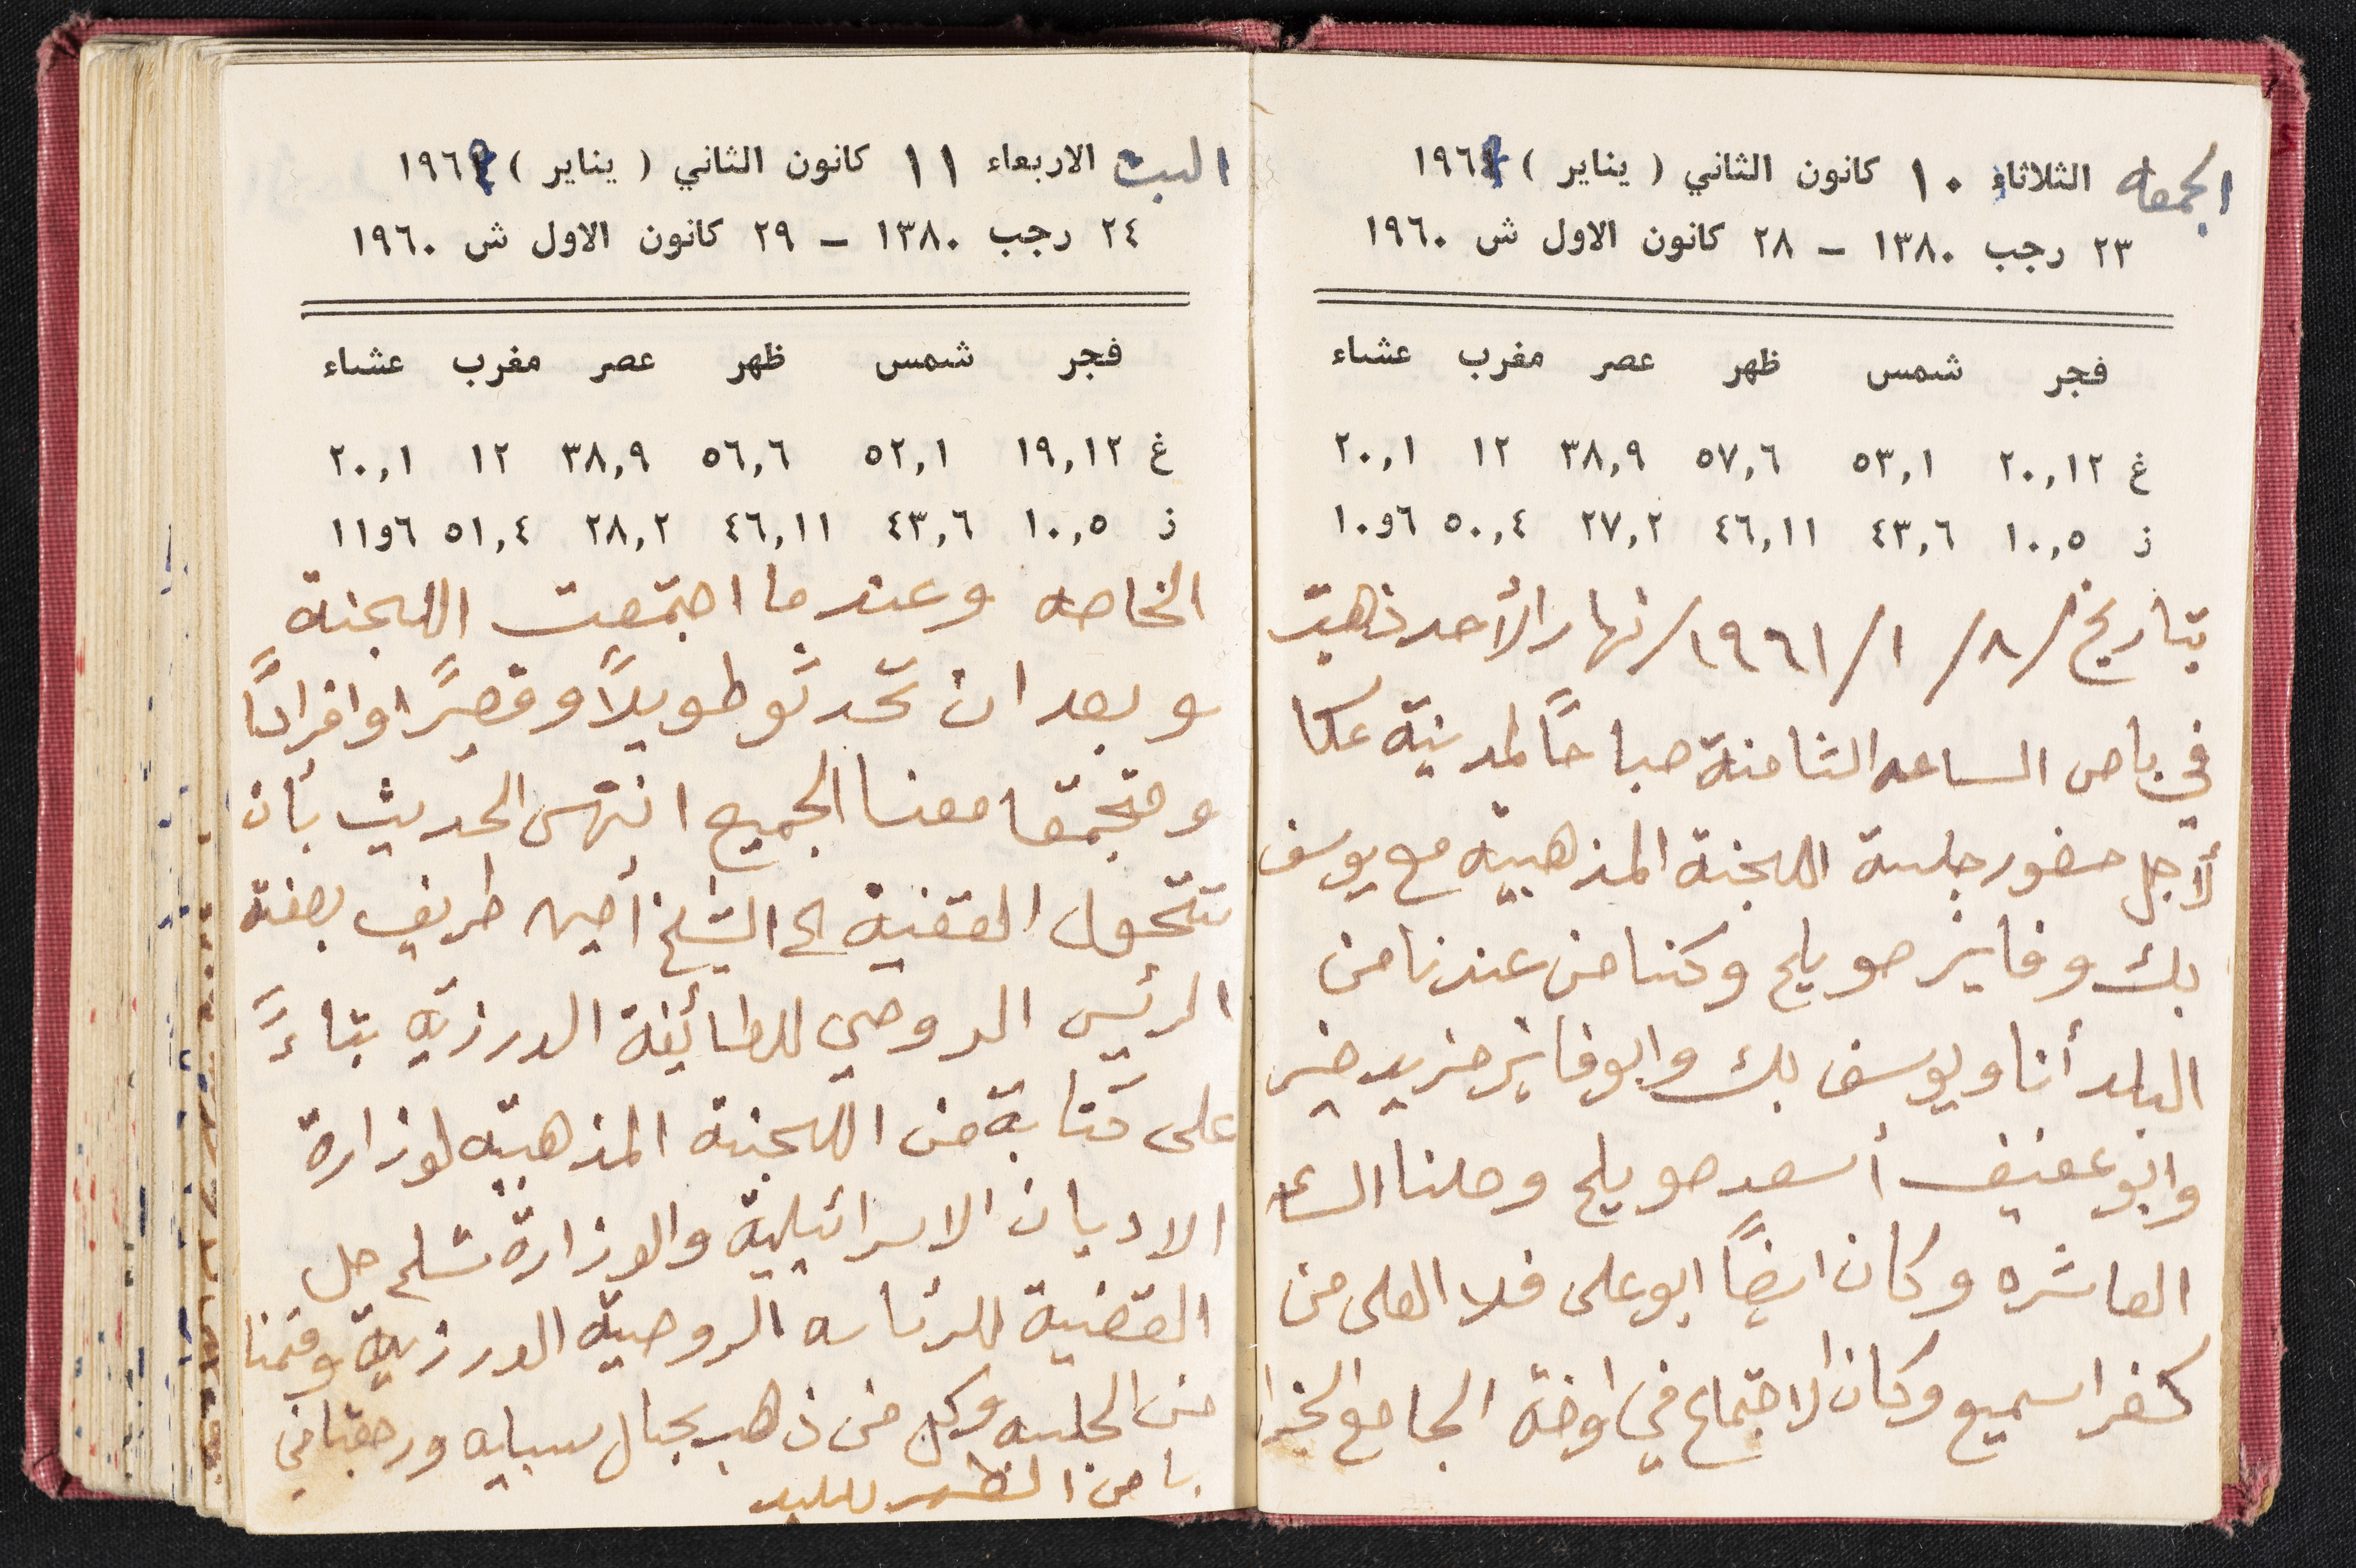 الجمعه الثلاثاء ١٠ كانون الثاني ( يناير ) ١٩٦١
٢٣ رجب ١٣٨٠ – ٢٨ كانون الاول ش ١٩٦٠
فجر شمس ظهر عصر مغرب عشاء
غ ٢٠,١٢ ٥٣,١ ٥٧,٦ ٣٨,٩ ١٢ ٢٠,١
ز ١٠,٥ ٤٣,٦ ٤٦,١١ ٢٧,٢ ٥٠,٤ ٦و١٠
بتاريخ /٨/ ١/ ١٩٦١/ نهار الأحد ذهبت
في باص الساعه الثامنة صباحاً لمدينة عكا
لأجل حضور جلسة اللجنة المذهبيه مع يوسف
بك وفايز صويلح وكنا من عندنا من
البلد أنا ويوسف بك وابو فايز مزيد خير
وابو عفيف أسعد صويلح وصلنا
العاشره وكان ايضاً ابو على فلا العلى من
كفر اسميع وكان الاجتماع في اوضة الجامع
السبت الاربعاء ١١ كانون الثاني ( يناير ) ١٩٦١
٢٤ رجب ١٣٨٠ – ٢٩ كانون الاول ش ١٩٦٠
فجر شمس ظهر عصر مغرب عشاء
غ ١٩,١٢ ٥٢,١ ٥٦,٦ ٣٨,٩ ١٢ ٢٠,١
ز ١٠,٥ ٤٣,٦ ٤٦,١١ ٢٨,٢ ٥١,٤ ٦و١١
الخاصه وعندما اجتمعت اللجنة
وبعد ان تحدثو طويلاً وقصيراً وافراداً
معنا الجميع انتهى الحديث بأن
تتحول القضية الى الشيخ أمين طريف بصفته
الرئيس الروحي للطائفة الدرزيه بناءً
على كتابة من اللجنة المذهبيه لوزارة
الاديان الاسرائيلية والوزارة تسلم حل
القضية للرئاسه الروحية الدرزية وقمنا
من الجلسه وكل من ذهب بحال سبيله ورجعنا في
باص الظهر للبلد